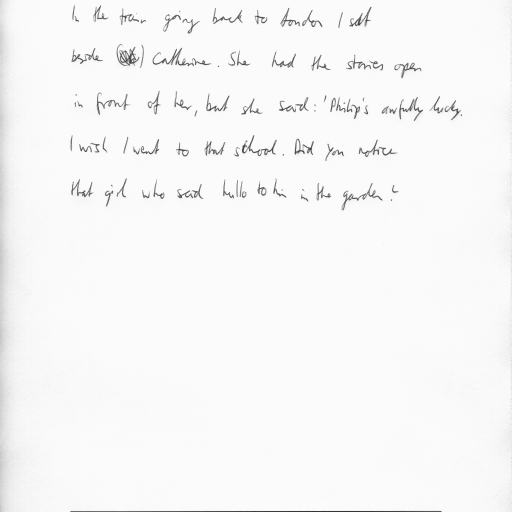 In the train going back to London I sat
beside () Catherine. She had the stories open
in front of her, but she said: 'Philip's awfully lucky.
I wish I went to that school. Did you notice
that girl who said hullo to him in the garden?